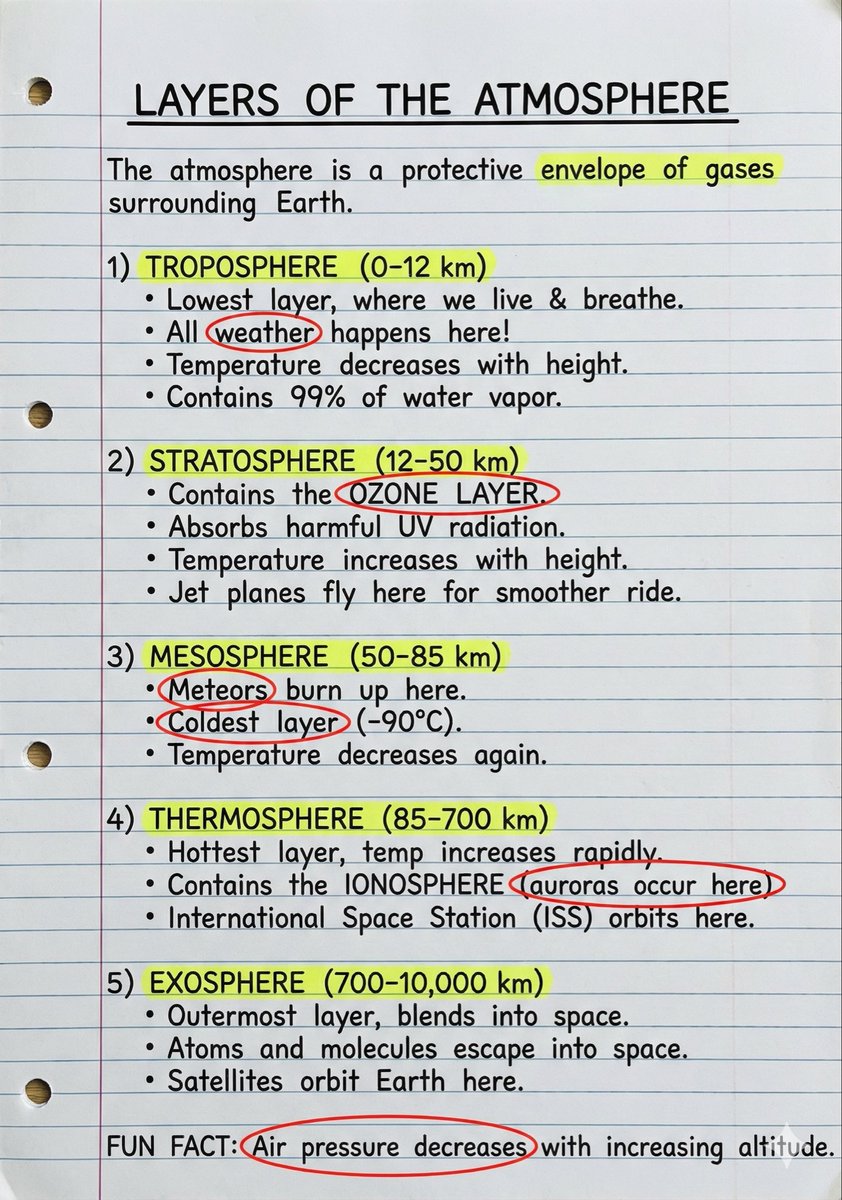 LAYERS OF THE ATMOSPHERE
The atmosphere is a protective envelope of gases
surrounding Earth.
1) TROPOSPHERE (0–12 km)
• Lowest layer, where we live & breathe.
• All weather happens here!
• Temperature decreases with height.
• Contains 99% of water vapor.
2) STRATOSPHERE (12–50 km)
• Contains the OZONE LAYER.
• Absorbs harmful UV radiation.
• Temperature increases with height.
• Jet planes fly here for smoother ride.
3) MESOSPHERE (50–85 km)
• Meteors burn up here.
• Coldest layer (–90°C).
• Temperature decreases again.
4) THERMOSPHERE (85–700 km)
• Hottest layer, temp increases rapidly.
• Contains the IONOSPHERE (auroras occur here)
• International Space Station (ISS) orbits here.
5) EXOSPHERE (700–10,000 km)
• Outermost layer, blends into space.
• Atoms and molecules escape into space.
• Satellites orbit Earth here.
FUN FACT: Air pressure decreases with increasing altitude.